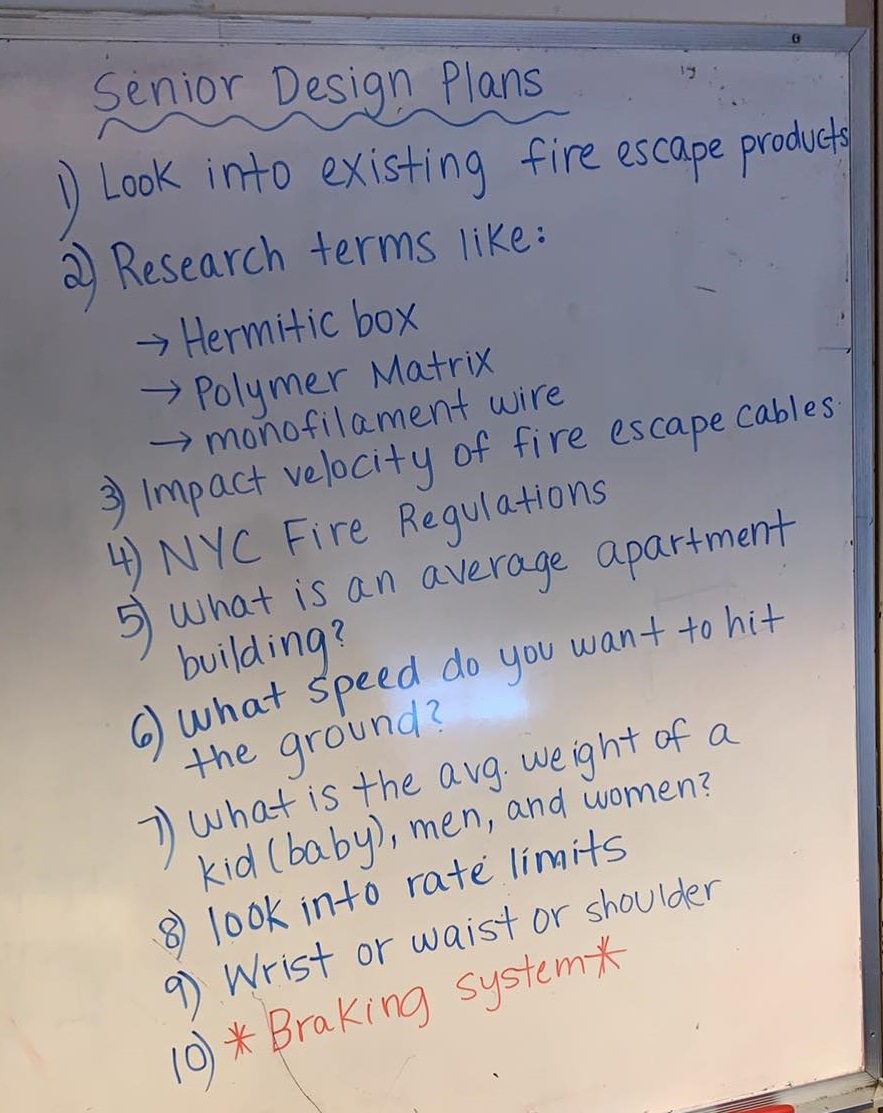 Senior Design Plans
1) Look into existing fire escape products
2) Research terms like:
→ Hermitic box
→ Polymer Matrix
→ monofilament wire
3) Impact velocity of fire escape cables
4) NYC Fire Regulations
5) What is an average apartment
building?
6) What speed do you want to hit
the ground?
7) What is the avg. weight of a
kid (baby), men, and women?
8) look into rate limits
9) Wrist or waist or shoulder
10) *Braking system*